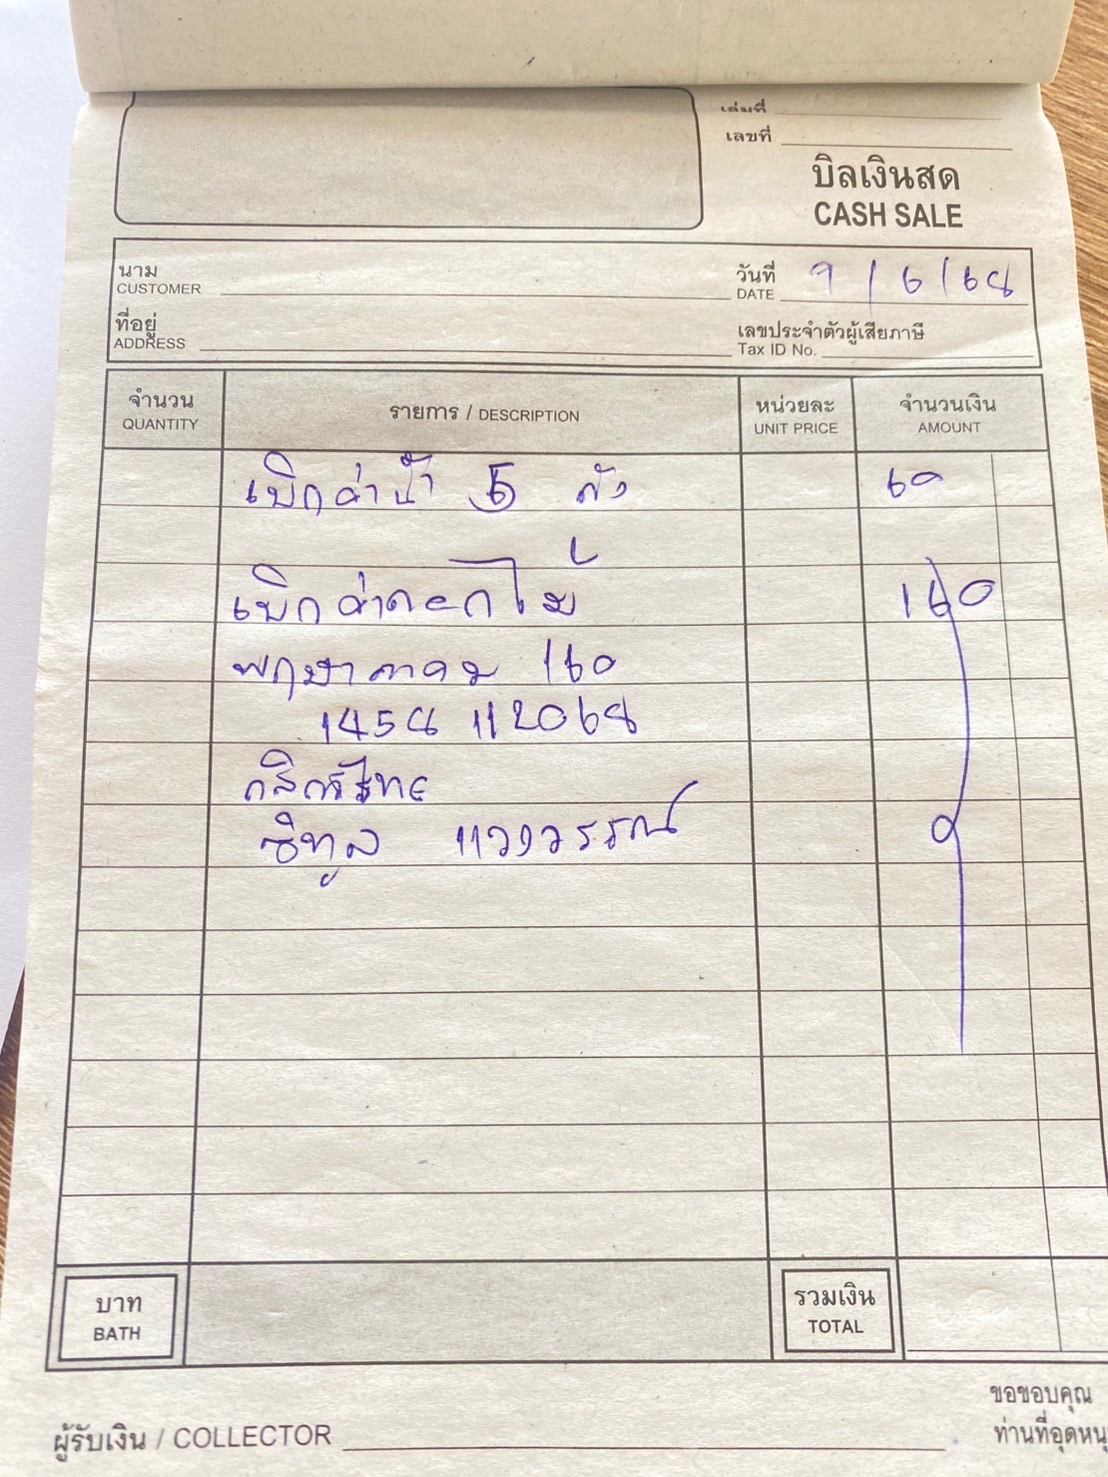 เล่มที่
เลขที่
บิลเงินสด
CASH SALE
นาม
CUSTOMER
วันที่ 9/6/68
DATE
ที่อยู่
ADDRESS
เลขประจำตัวผู้เสียภาษี
Tax ID No.
จำนวน
QUANTITY
รายการ / DESCRIPTION
หน่วยละ
UNIT PRICE
จำนวนเงิน
AMOUNT
เบิกค่าน้ำ 5 ถัง 60
เบิกค่าดอกไม้ 160
พฤษภาคม 160
1458 112068
กสิกรไทย
แววววรรณ์
บาท
BATH
รวมเงิน
TOTAL
ขอขอบคุณ
ท่านที่อุดหนุ
ผู้รับเงิน / COLLECTOR